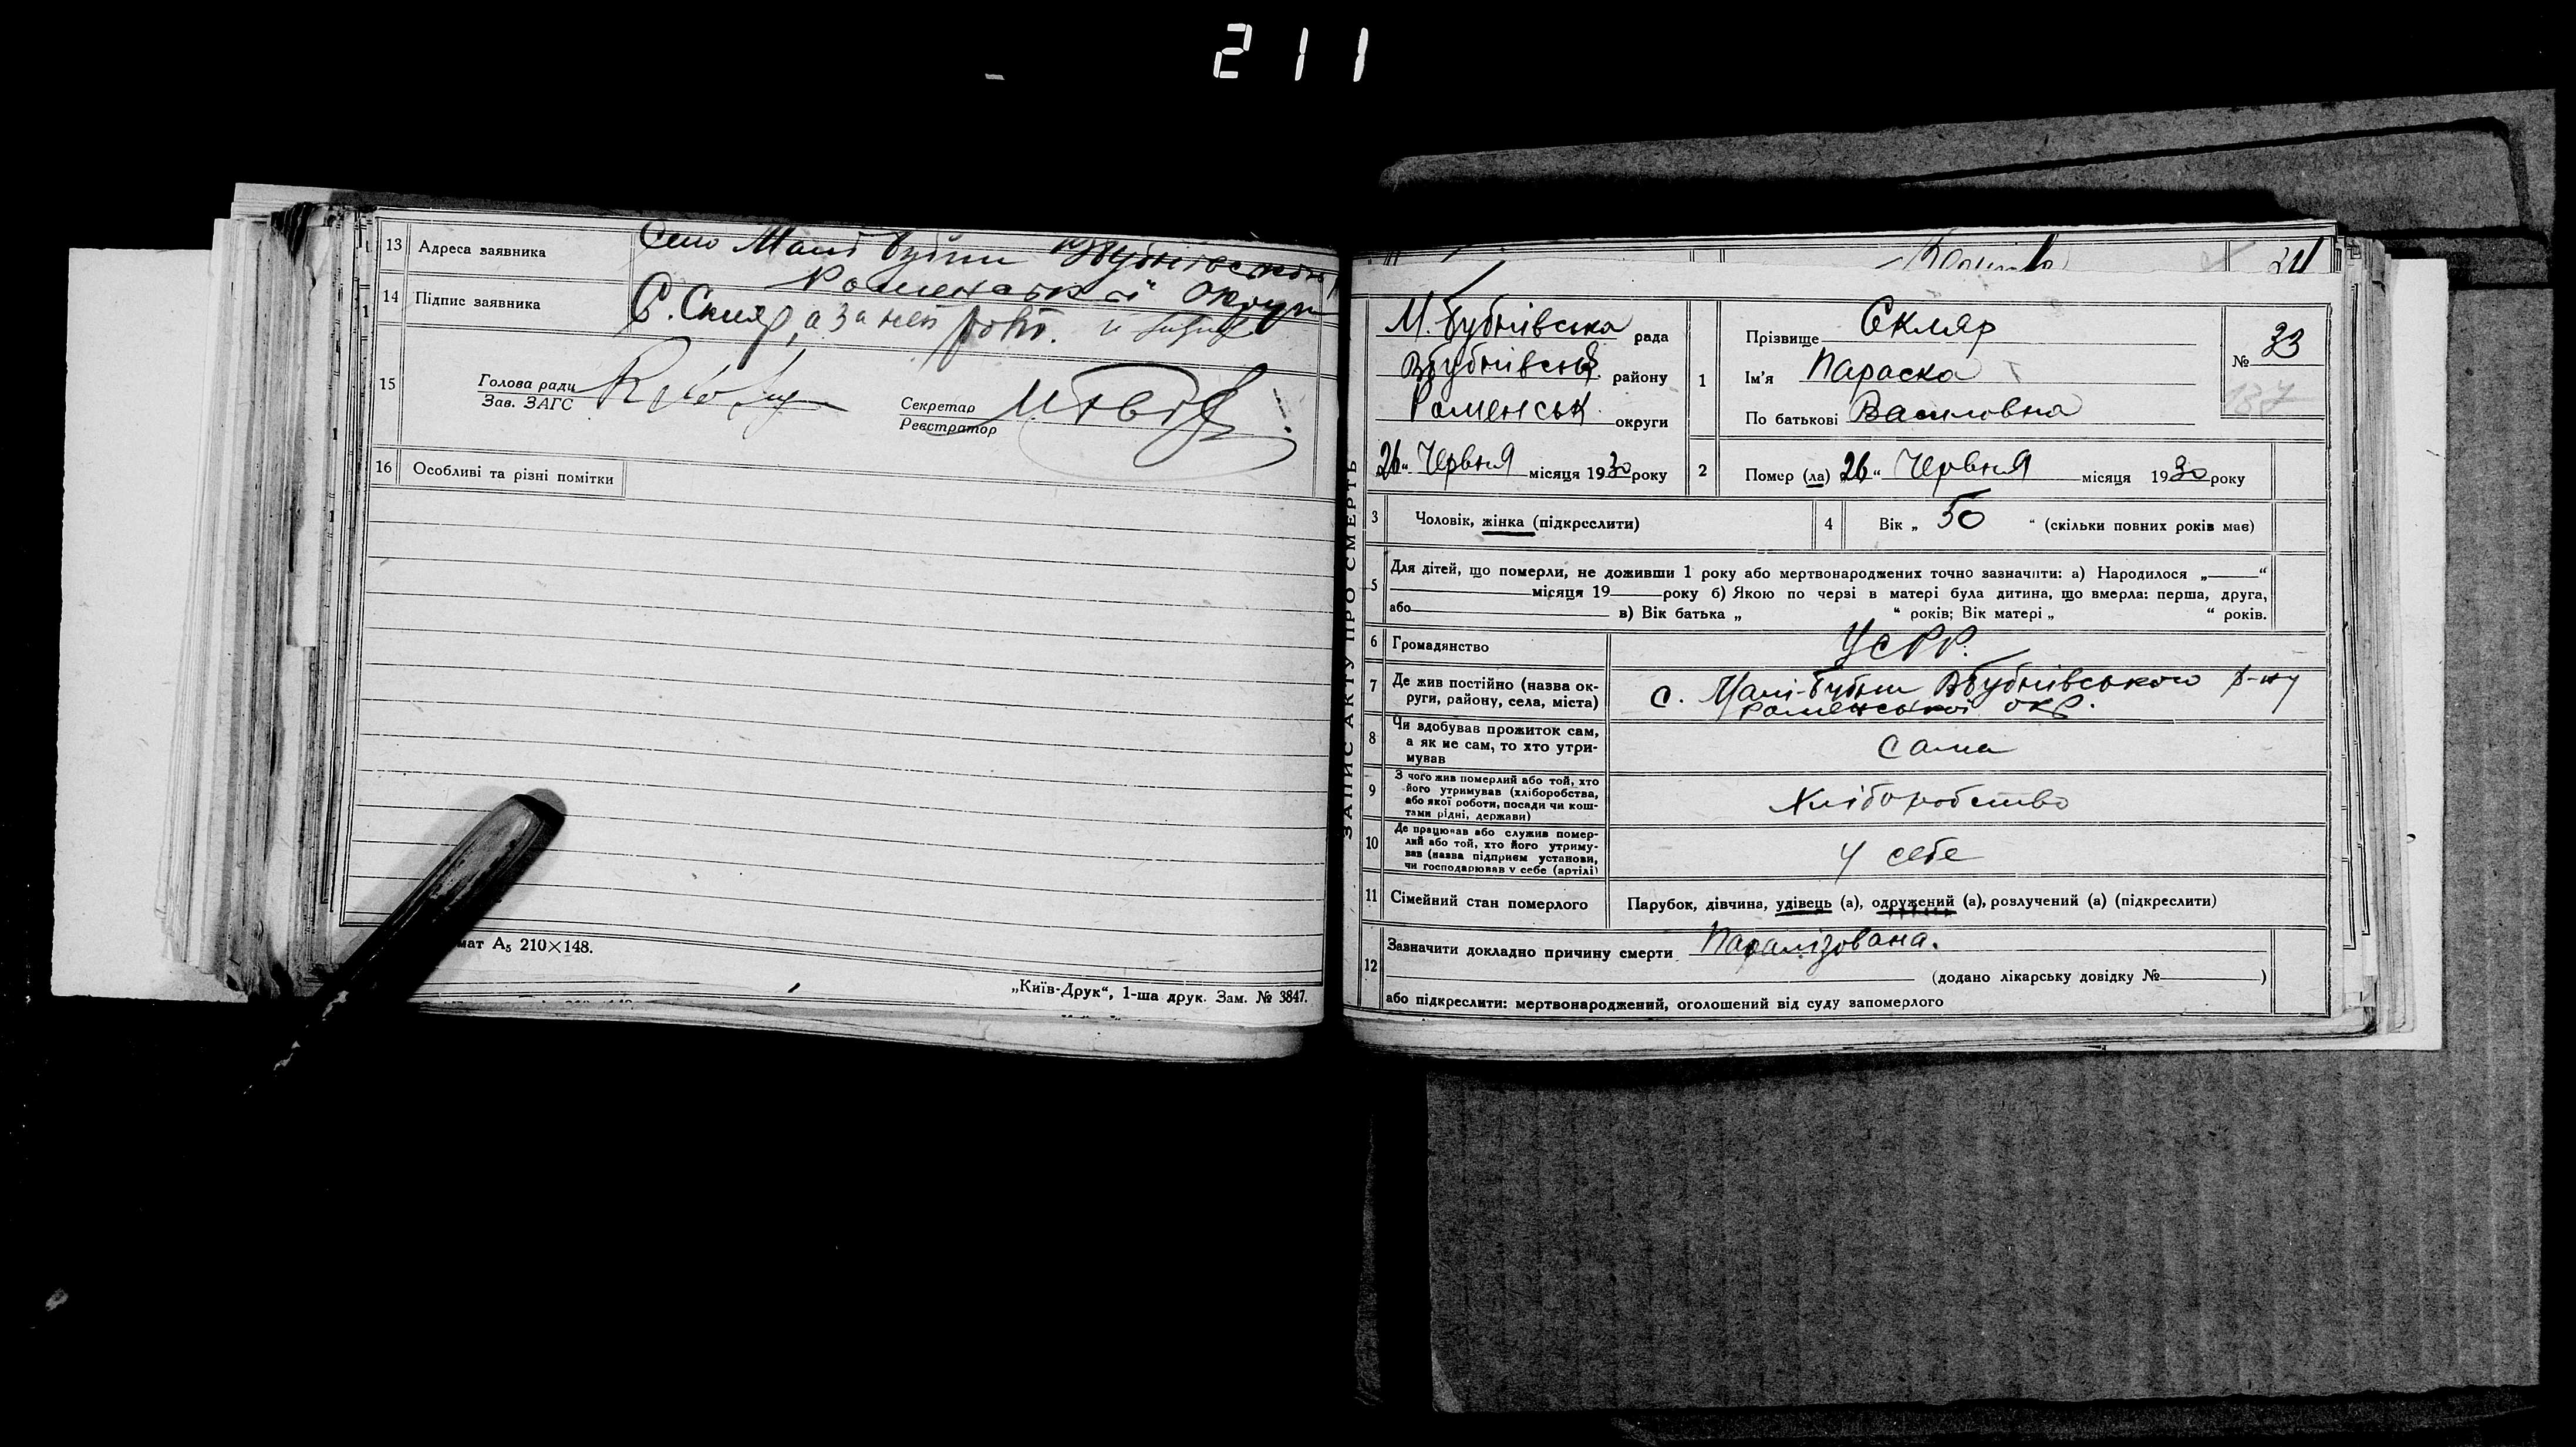 211
13 Адреса заявника Село Малі Бубни
Роменської округи
14 Підпис заявника С. Скляр, а за неї
15 Голова ради
Зав. ЗАГС
Секретар
Реєстратор
16 Особливі та різні помітки
мат А₅ 210×148.
„Київ-Друк“, 1-ша друк. Зам. № 3847.
ЗАПИС АКТУ ПРО СМЕРТЬ
М. Бубнівська рада
ВБубнівськ. району
Роменськ. округи
26 “ Червня місяця 1930 року
1 Прізвище Скляр
Ім'я Параска
По батькові Василовна
№ 33
137
2 Помер (ла) 26 “ Червня місяця 1930 року
3 Чоловік, жінка (підкреслити)
4 Вік „ 50 “ (скільки повних років має)
5 Для дітей, що померли, не доживши 1 року або мертвонароджених точно зазначити: а) Народилося „ “
місяця 19 року б) Якою по черзі в матері була дитина, що вмерла: перша, друга,
або в) Вік батька „ “ років; Вік матері „ “ років.
6 Громадянство УСРР.
7 Де жив постійно (назва ок-
руги, району, села, міста)
с. Малі-Бубни ВБубнівського р-ну
Роменської окр.
8 Чи здобував прожиток сам,
а як не сам, то хто утри-
мував
Сама
9 З чого жив померлий або той, хто
його утримував (хліборобства,
або якої роботи, посади чи кош-
тами рідні, держави)
Хліборобство
10 Де працював або служив помер-
лий або той, хто його утриму-
вав (назва підприєм установи,
чи господарював у себе (артілі)
У себе
11 Сімейний стан померлого Парубок, дівчина, удівець (а), одружений (а), розлучений (а) (підкреслити)
12 Зазначити докладно причину смерти Паралізована.
(додано лікарську довідку № )
або підкреслити: мертвонароджений, оголошений від суду запомерлого